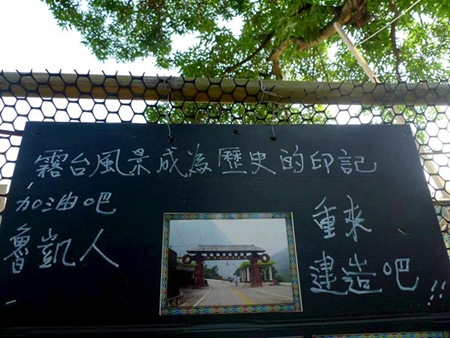 霧台風景成為歷史的印記
加油吧
魯凱人
重來
建造吧!!